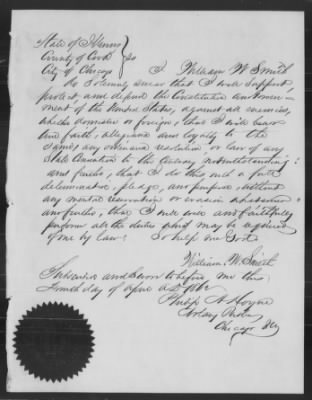 State of Illinois
County of Cook } SS
City of Chicago
I, William W Smith
do solemnly swear that I will support,
protect, and defend the Constitution and Govern-
ment of the United States, against all enemies,
whether domestic or foreign; that I will bear
true faith, allegiance and loyalty to the
same, any ordinance resolution or law of any
State Convention to the contrary notwithstanding;
and further, that I do this with a full
determination, pledge, and purpose, without
any mental reservation or evasion whatsoever
and further, that I will well and faithfully
perform all the duties which may be required
of me by law: So help me God
William W. Smith
Subscribed and Sworn to before me this
day of April A.D. 1862
Philip A Hoyne
Notary Public
Chicago Ills